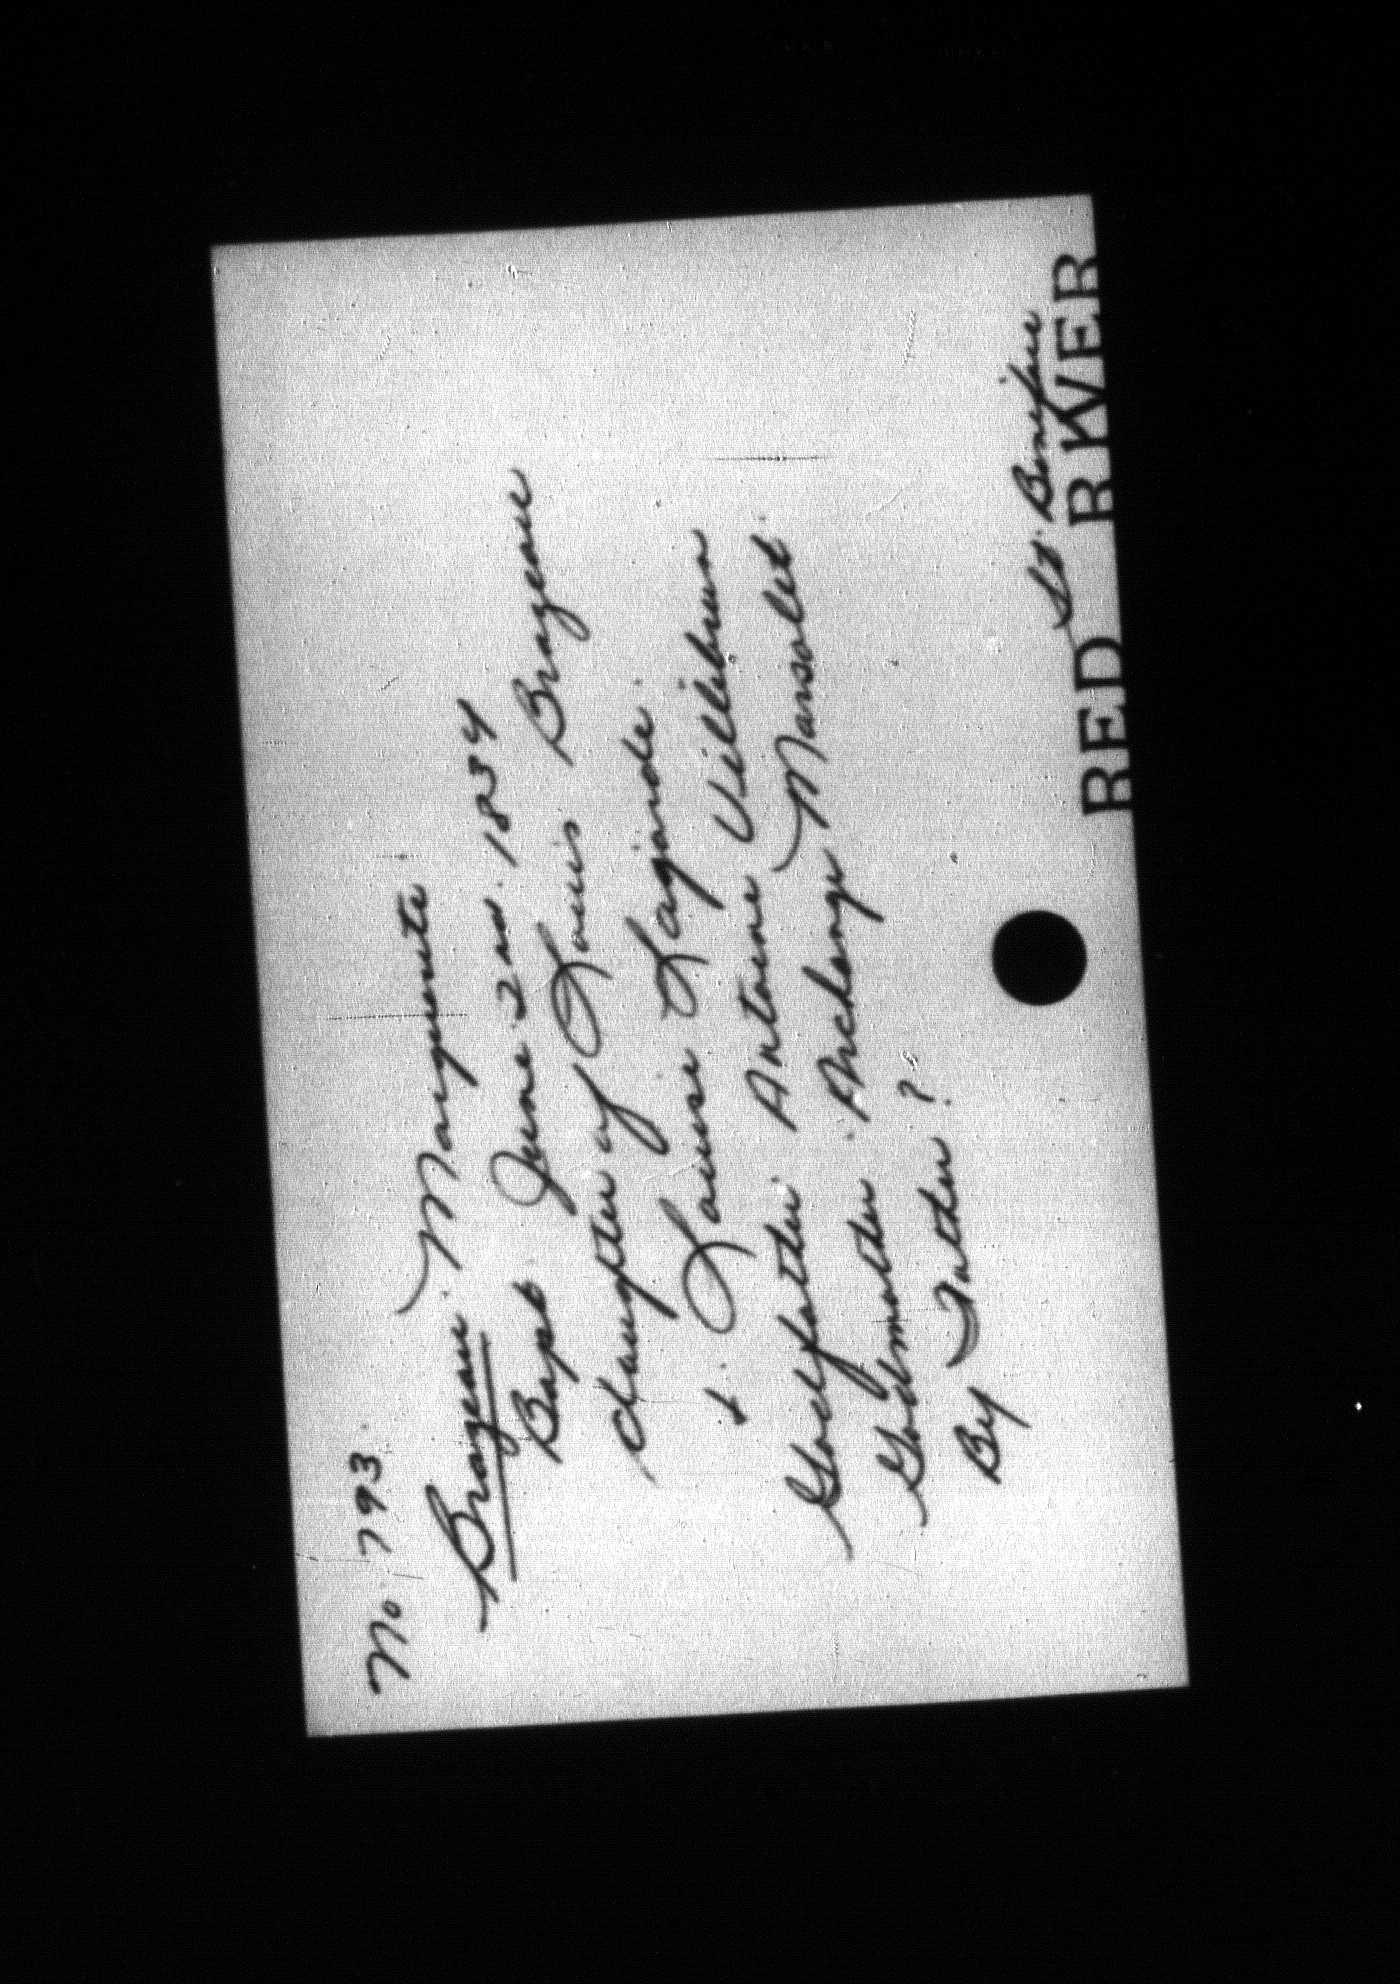 No 793.
Brazeau. Marguerite
Bapt. June 2nd. 1834
daughter of Louis Brazeau
& Louise Lajande.
Godfather Antoine Villebrun
Godmother. Archange Marsolet.
By Father ?
St. Boniface
RED RIVER